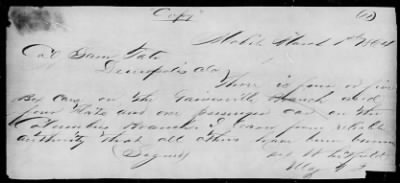 "Copy"
Mobile March 1st 1864
Col Sam Tate
Demopolis Ala
There is four or five
Box Cars on the Gainesville Branch and
four Flats and one passenger car on the
Columbus Branch. I learn from reliable
authority that all others have been burned
(Signed)